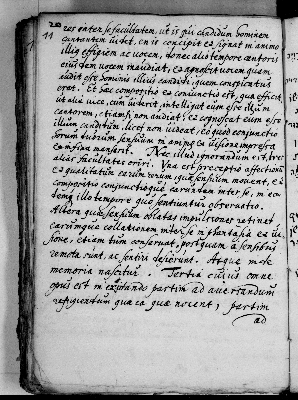 res intense facultatem, ut is qui candidum hominem
cantantem videt, eum is concipit ea signat in animo
illius effigiem ac vocem, donec alio tempore cantoris
eiusdem vocem inaudiat, ea agnoscit vocem quam
audit esse hominis illius candidi, quem conspicatus
erat. Et haec compositio ea coniunctio est, quae efficit
ut alia vice, cum viderit, intelligat eum esse illum
cantorem, etiamsi non audiat, ea cognoscat eum esse
illum canditum, licet non videat, eo quod coniunctio
horum duorum sensuum in animo ea visione impressa
ea infixa manserit. Nec illud ignorandum est, tres
alias facultates oriri. Una est perceptio affectionum
ea qualitatum earum rerum, quae sensum movent, ea
compositio coniunctioque earundem inter se, in eo
tempore quo sentiuntur observatio.
Altera quae sensuum collatas impulsiones retinet
earumque collationem inter se in phantasia ea
sione, etiam tum conservat, postquam a sensibus
remota sunt, ac sentiri desierunt. Atque inde
memoria nascitur. Tertia cuius omne
opus est in excitando partim ad avertendum
refugiendum quae ea quae nocent, partim
ad